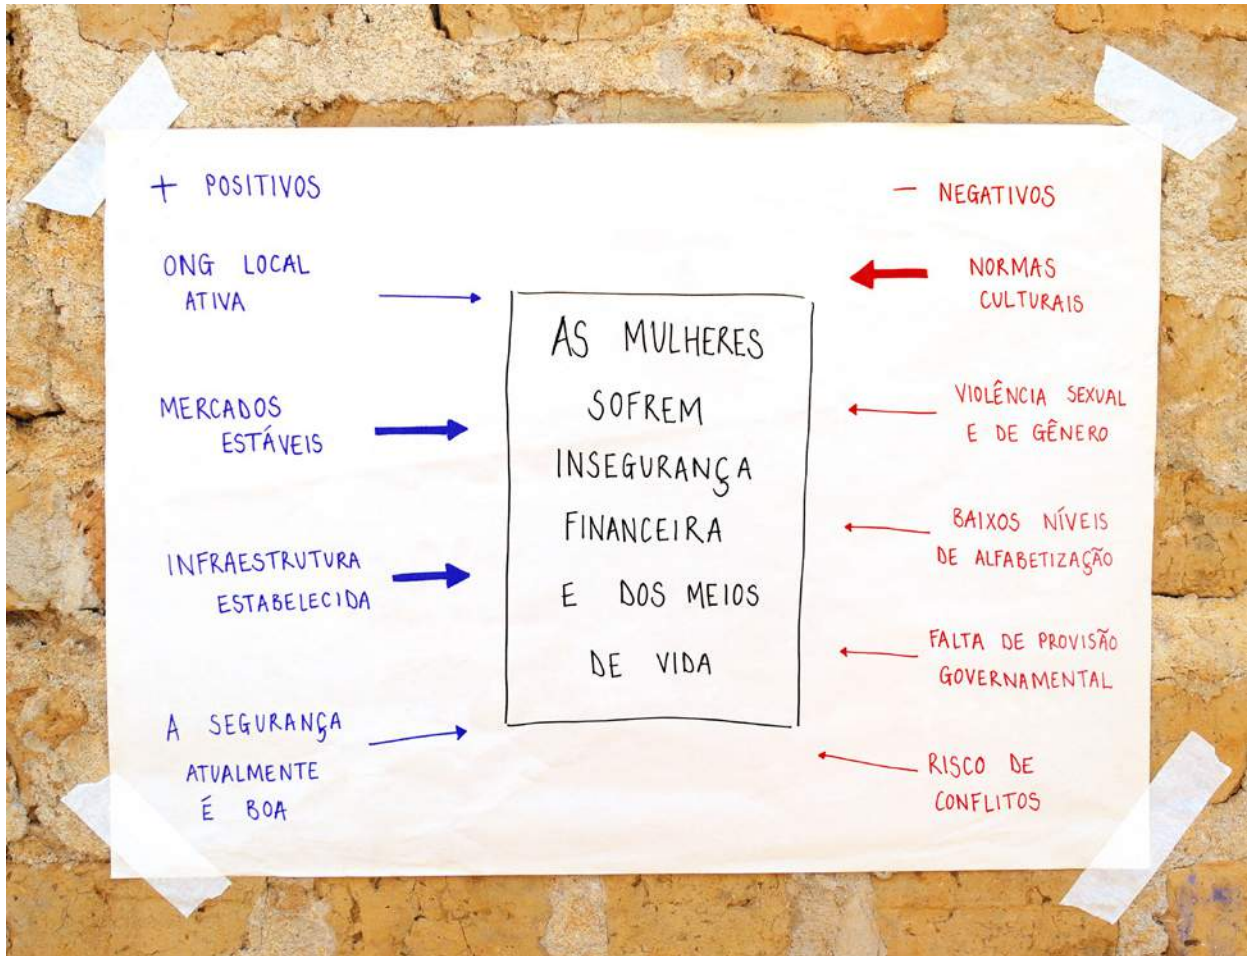 + POSITIVOS
ONG LOCAL
ATIVA
MERCADOS
ESTÁVEIS
INFRAESTRUTURA
ESTABELECIDA
A SEGURANÇA
ATUALMENTE
É BOA
AS MULHERES
SOFREM
INSEGURANÇA
FINANCEIRA
E DOS MEIOS
DE VIDA
- NEGATIVOS
NORMAS
CULTURAIS
VIOLÊNCIA SEXUAL
E DE GÊNERO
BAIXOS NÍVEIS
DE ALFABETIZAÇÃO
FALTA DE PROVISÃO
GOVERNAMENTAL
RISCO DE
CONFLITOS